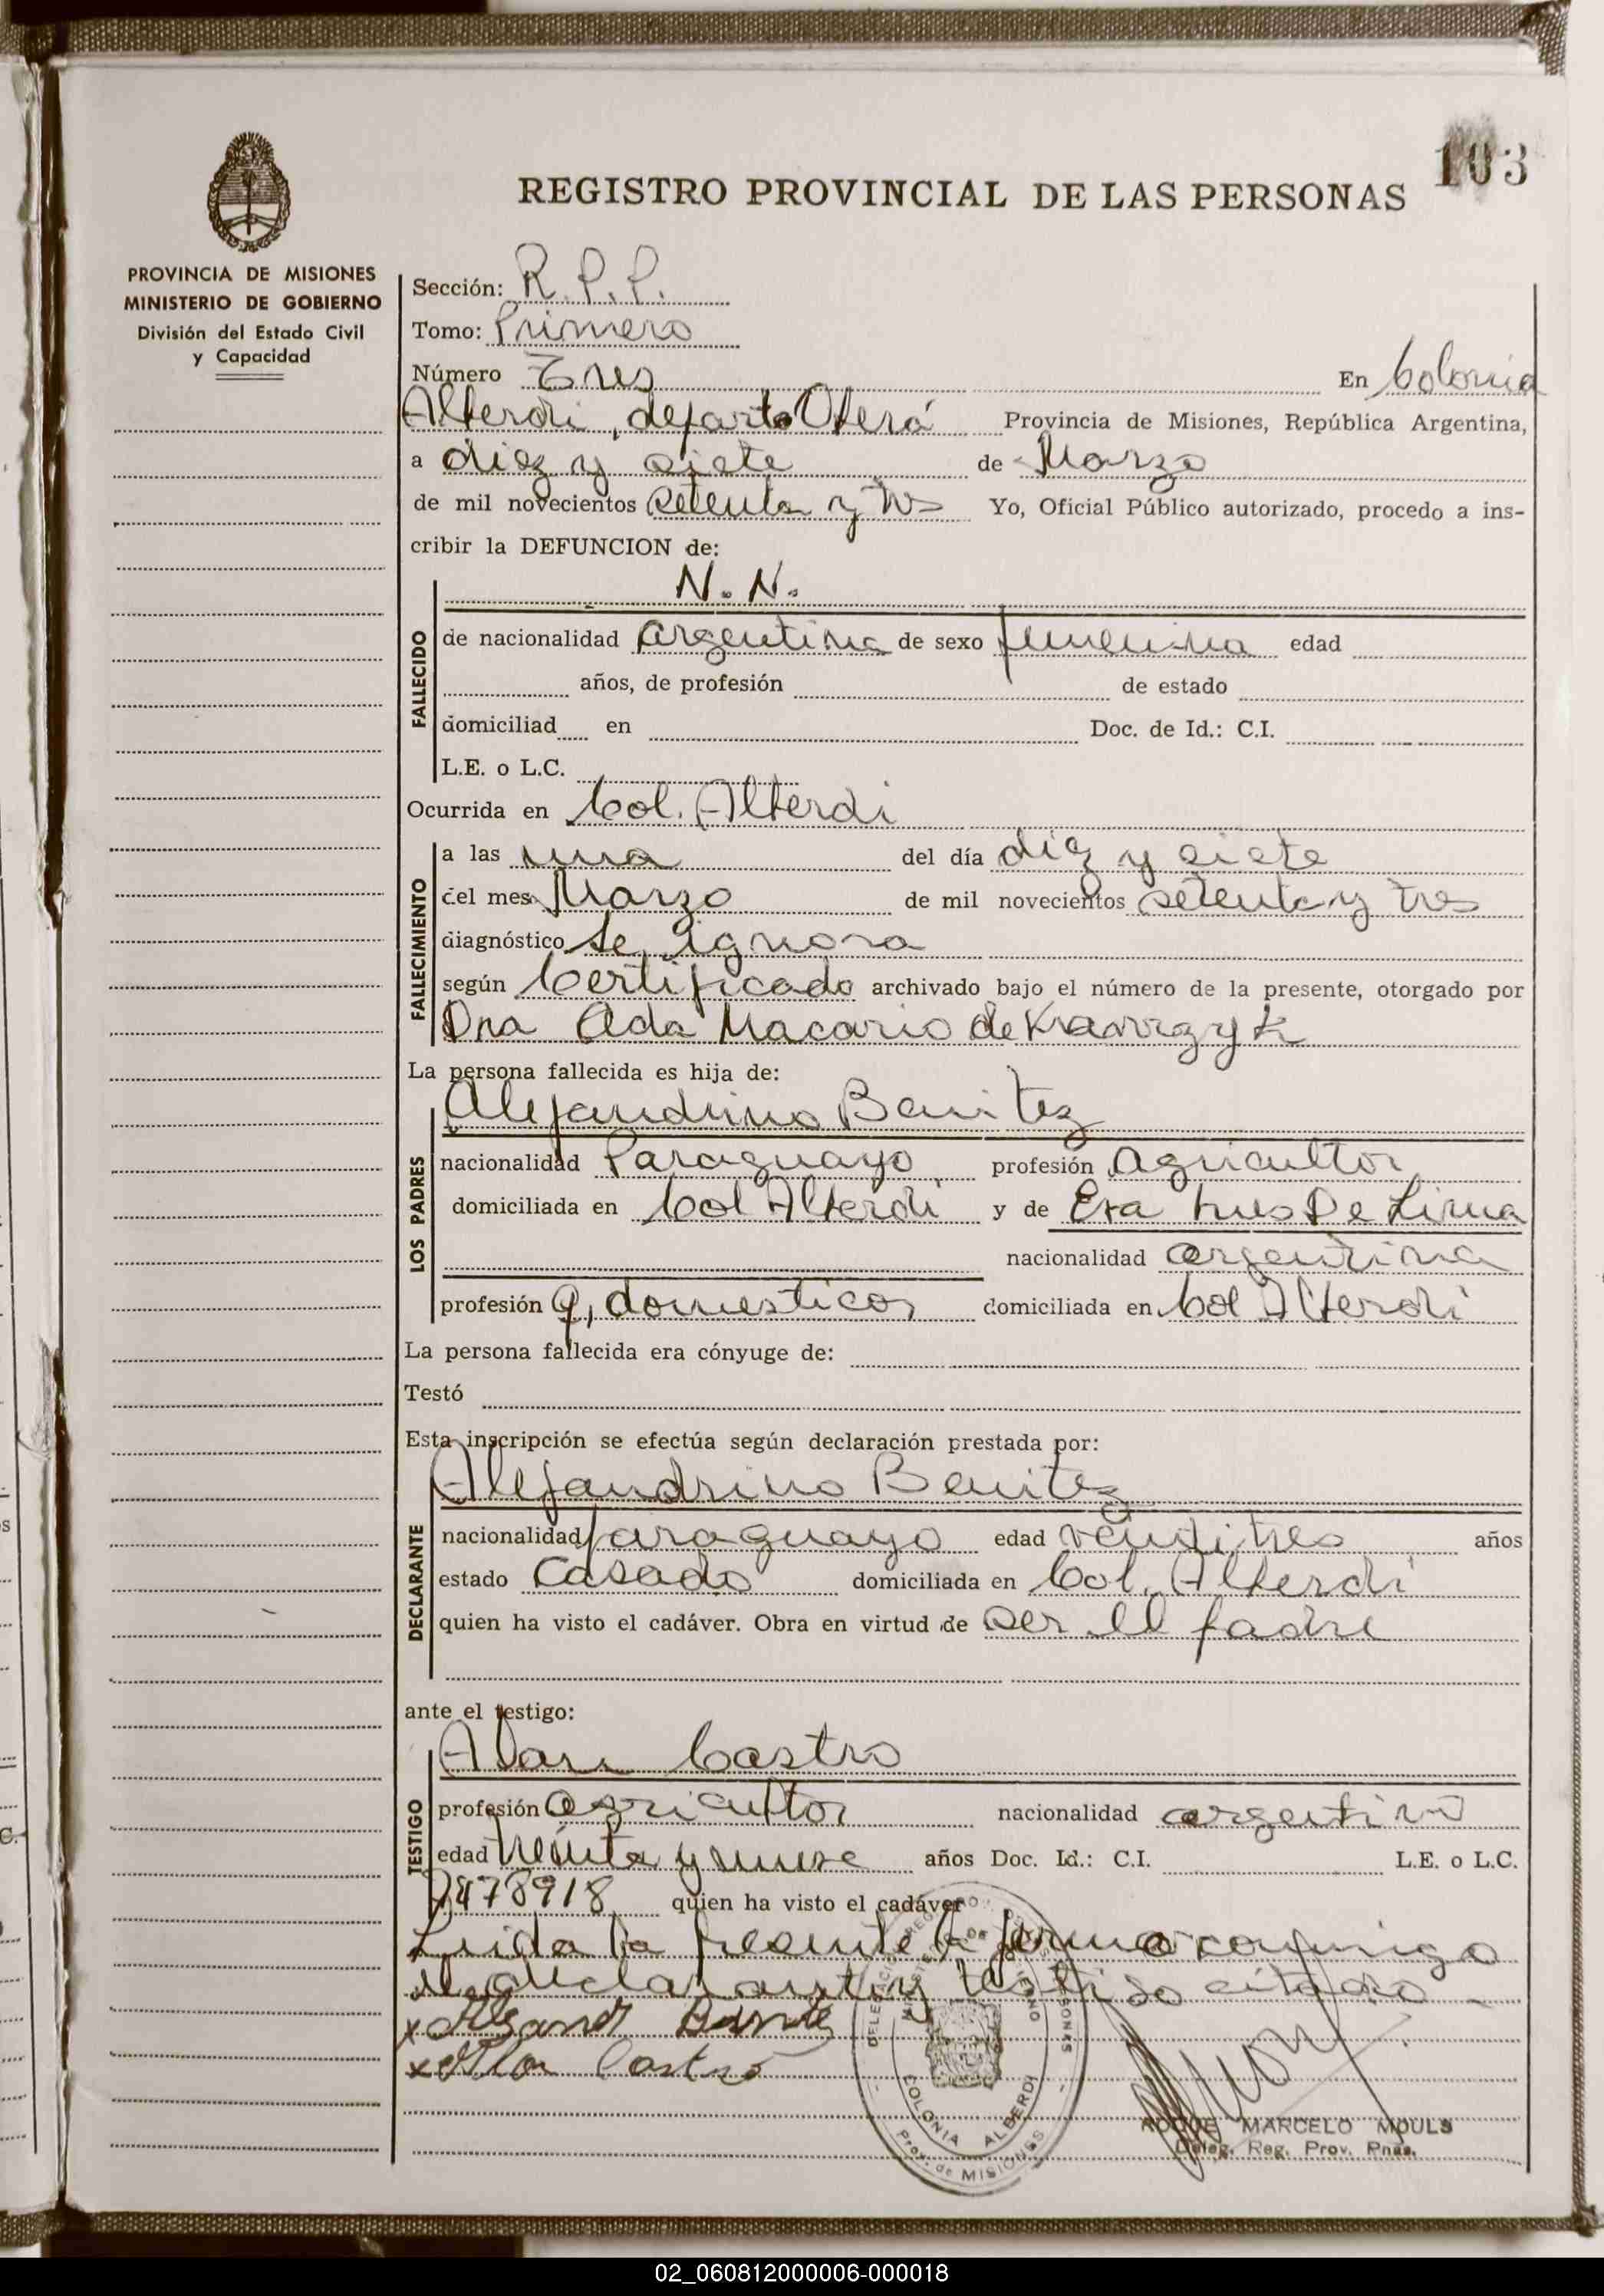 103
REGISTRO PROVINCIAL DE LAS PERSONAS
PROVINCIA DE MISIONES
MINISTERIO DE GOBIERNO
División del Estado Civil
y Capacidad
Sección: R.P.P.
Tomo: Primero
Número Tres En Colonia
Alberdi, departo Oberá Provincia de Misiones, República Argentina,
a diez y siete de Marzo
de mil novecientos setenta y tres Yo, Oficial Público autorizado, procedo a ins-
cribir la DEFUNCION de:
N. N.
FALLECIDO
de nacionalidad argentina de sexo femenina edad
años, de profesión de estado
domiciliad en Doc. de Id.: C.I.
L.E. o L.C.
Ocurrida en Col. Alberdi
FALLECIMIENTO
a las una del día diez y siete
del mes Marzo de mil novecientos setenta y tres
diagnóstico se ignora
según Certificado archivado bajo el número de la presente, otorgado por
Dra Ada Macario de
La persona fallecida es hija de:
Alejandrino Benitez
LOS PADRES
nacionalidad Paraguayo profesión agricultor
domiciliada en Col Alberdi y de De Lima
nacionalidad argentina
profesión q, domesticos domiciliada en Col Alberdi
La persona fallecida era cónyuge de:
Testó
Esta inscripción se efectúa según declaración prestada por:
Alejandrino Benitez
DECLARANTE
nacionalidad paraguayo edad ventitres años
estado Casado domiciliada en Col. Alberdi
quien ha visto el cadáver. Obra en virtud de ser el padre
ante el testigo:
Castro
TESTIGO
profesión agricultor nacionalidad argentino
edad treinta y nueve años Doc. Id.: C.I. L.E. o L.C.
7478918 quien ha visto el cadáver
Leida la presente la firma conmigo
el declarante y testigo citado -
Castro
COLONIA ALBERDI
Prov. de MISIONES
ROQUE MARCELO MOULS
Deleg. Reg. Prov. Pnas.
02_060812000006-000018